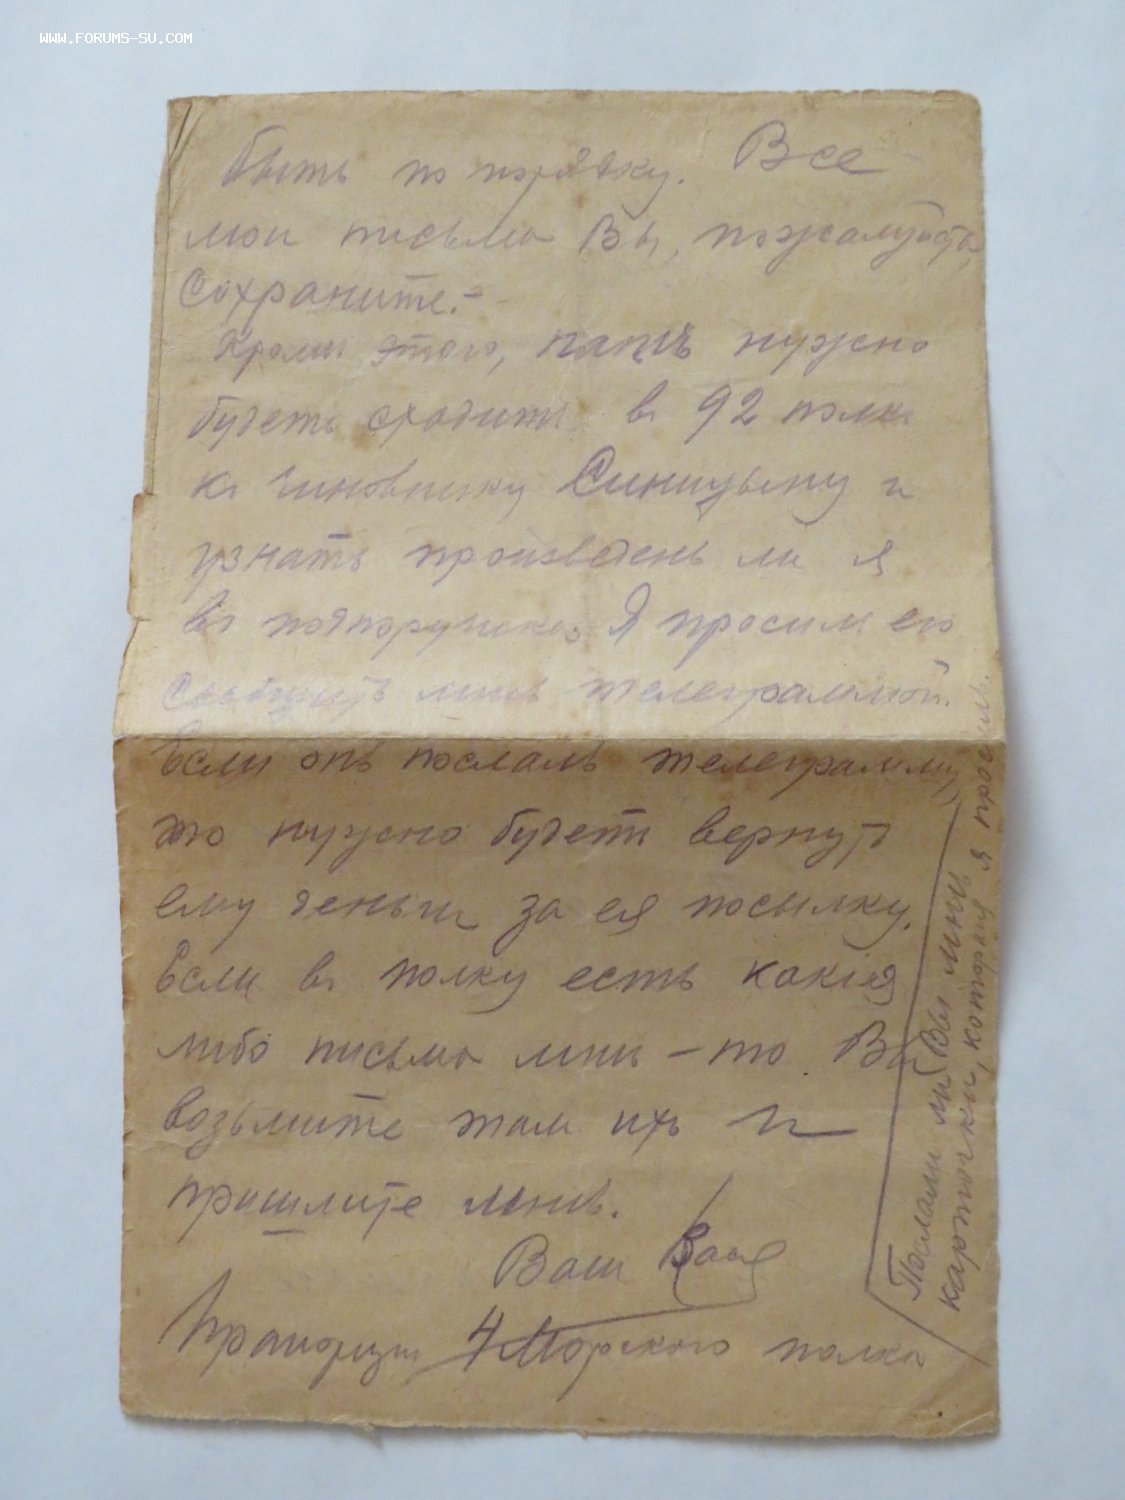 WWW.FORUMS-SU.COM
быть по порядку. Все
мои письма Вы, пожалуйста,
сохраните.-
Кроме этого, папѣ нужно
будетъ сходить въ 92 полкъ
къ чиновнику Синицыну и
узнать произведенъ ли я
въ подпоручики. Я просилъ его
сообщить мнѣ телеграммой.
Если онъ послалъ телеграмму,
то нужно будетъ вернуть
ему деньги за ея посылку.
Если въ полку есть какія
либо письма мнѣ - то Вы
возьмите тамъ ихъ и
пришлите мнѣ.
Ваш Вася
Прапорщик 4 Морского полка
Послали ли Вы мнѣ
карточки, которыя я просилъ.